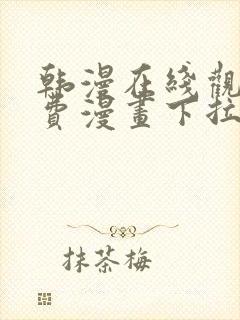 韩漫在线觀
費漫畫下拉
抹茶梅